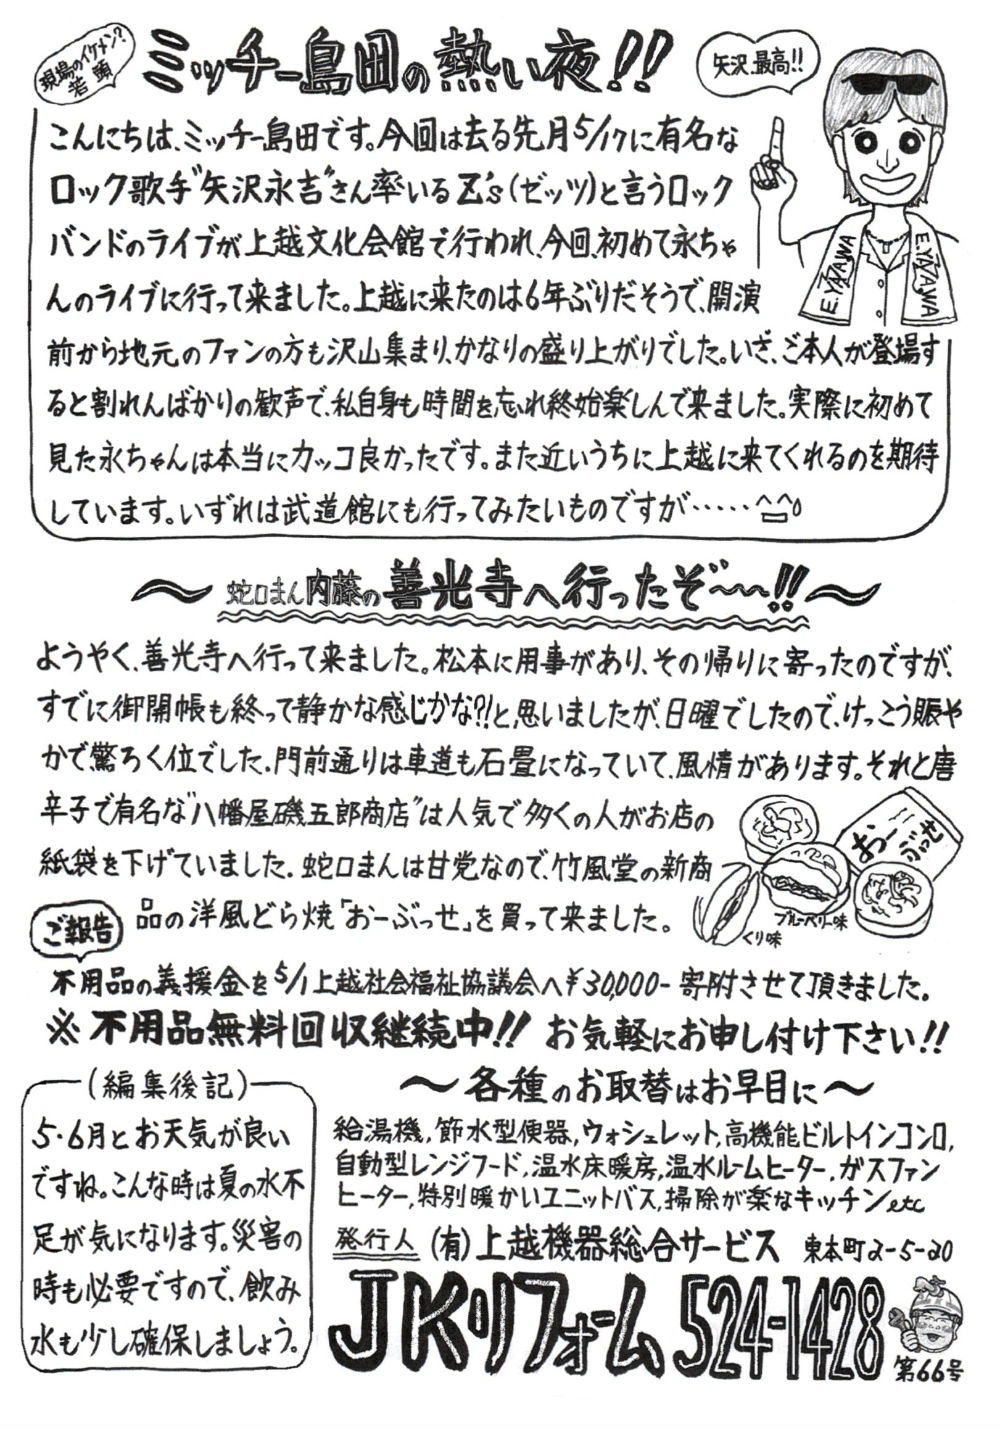 現場のイケメン?
若頭
ミッチー島田の熱い夜!!
矢沢、最高!!
E.YAZAWA
E.YAZAWA
こんにちは、ミッチー島田です。今回は去る先月5/17に有名な
ロック歌手"矢沢永吉"さん率いるZ's(ゼッツ)と言うロック
バンドのライブが上越文化会館で行われ、今回、初めて永ちゃ
んのライブに行って来ました。上越に来たのは6年ぶりだそうで、開演
前から地元のファンの方も沢山集まり、かなりの盛り上がりでした。いざ、ご本人が登場す
ると割れんばかりの歓声で、私自身も時間を忘れ終始楽しんで来ました。実際に初めて
見た永ちゃんは本当にカッコ良かったです。また近いうちに上越に来てくれるのを期待
しています。いずれは武道館にも行ってみたいものですが……
〜蛇口まん内藤の善光寺へ行ったぞ〜〜!!〜
ようやく、善光寺へ行って来ました。松本に用事があり、その帰りに寄ったのですが、
すでに御開帳も終って静かな感じかな?!と、思いましたが、日曜でしたので、けっこう賑や
かで驚ろく位でした。門前通りは車道も石畳になっていて、風情があります。それと唐
辛子で有名な"八幡屋磯五郎商店"は人気で多くの人がお店の
紙袋を下げていました。蛇口まんは甘党なので、竹風堂の新商
品の洋風どら焼「おーぶっせ」を買って来ました。
おーぶっせ
ブルーベリー味
くり味
ご報告
不用品の義援金を5/1上越社会福祉協議会へ¥30,000-寄附させて頂きました。
※不用品無料回収継続中!! お気軽にお申し付け下さい!!
(編集後記)
5・6月とお天気が良い
ですね。こんな時は夏の水不
足が気になります。災害の
時も必要ですので、飲み
水も少し確保しましょう。
〜各種のお取替はお早目に〜
給湯機,節水型便器,ウォシュレット,高機能ビルトインコンロ,
自動型レンジフード,温水床暖房,温水ルームヒーター,ガスファン
ヒーター,特別暖かいユニットバス,掃除が楽なキッチンetc
発行人 (有)上越機器総合サービス 東本町2-5-20
JKリフォーム 524-1428
第66号